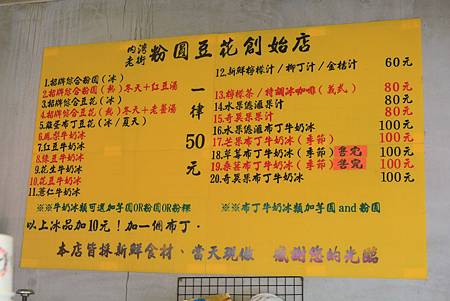 內灣老街 粉圓豆花創始店
1.招牌綜合粉圓(冰)
2.招牌綜合粉圓(熱)冬天+紅豆湯
3.招牌綜合豆花(冰)
4.招牌綜合豆花(熱)冬天+老薑湯
5.雞蛋布丁豆花(冰/夏天)
6.鳳梨牛奶冰
7.紅豆牛奶冰
8.綠豆牛奶冰
9.花生牛奶冰
10.花豆牛奶冰
11.薏仁牛奶冰
一律50元
12.新鮮檸檬汁/柳丁汁/金桔汁 60元
13.檸檬茶/特調冰咖啡(義式) 80元
14.水果總滙果汁 80元
15.奇異果果汁 80元
16.水果總滙布丁牛奶冰 100元
17.芒果布丁牛奶冰(季節) 100元
18.草莓布丁牛奶冰(季節)售完 100元
19.香蕉布丁牛奶冰(季節)售完 100元
20.奇異果布丁牛奶冰 100元
※※牛奶冰類可選加芋圓OR粉圓OR粉粿
※※布丁牛奶冰類加芋圓and粉圓
以上冰品加10元!加一個布丁.
本店皆採新鮮食材、當天現做 感謝您的光臨